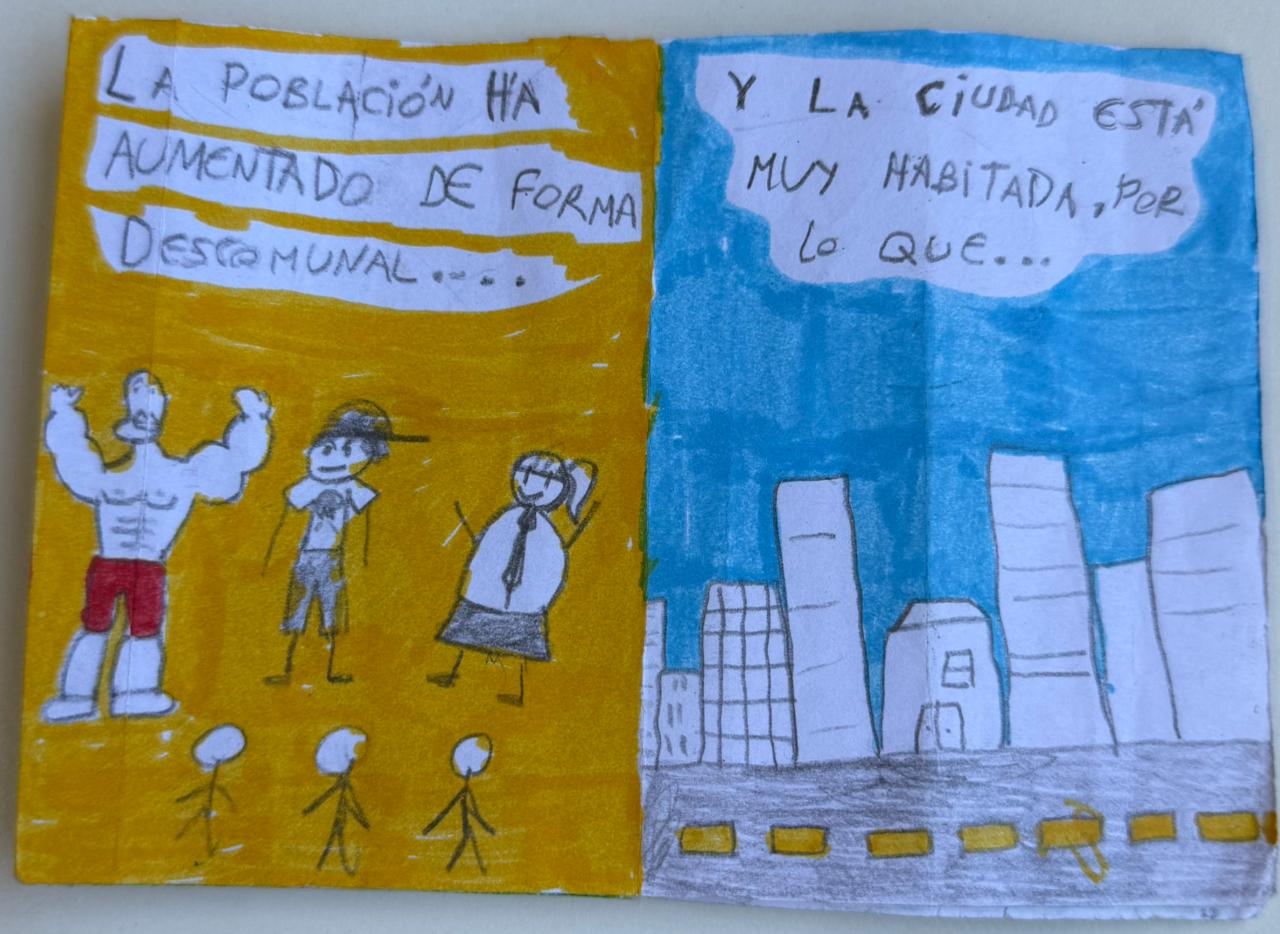 LA POBLACIÓN HA
AUMENTADO DE FORMA
DESCOMUNAL.....
Y LA CIUDAD ESTÁ
MUY HABITADA, POR
LO QUE...